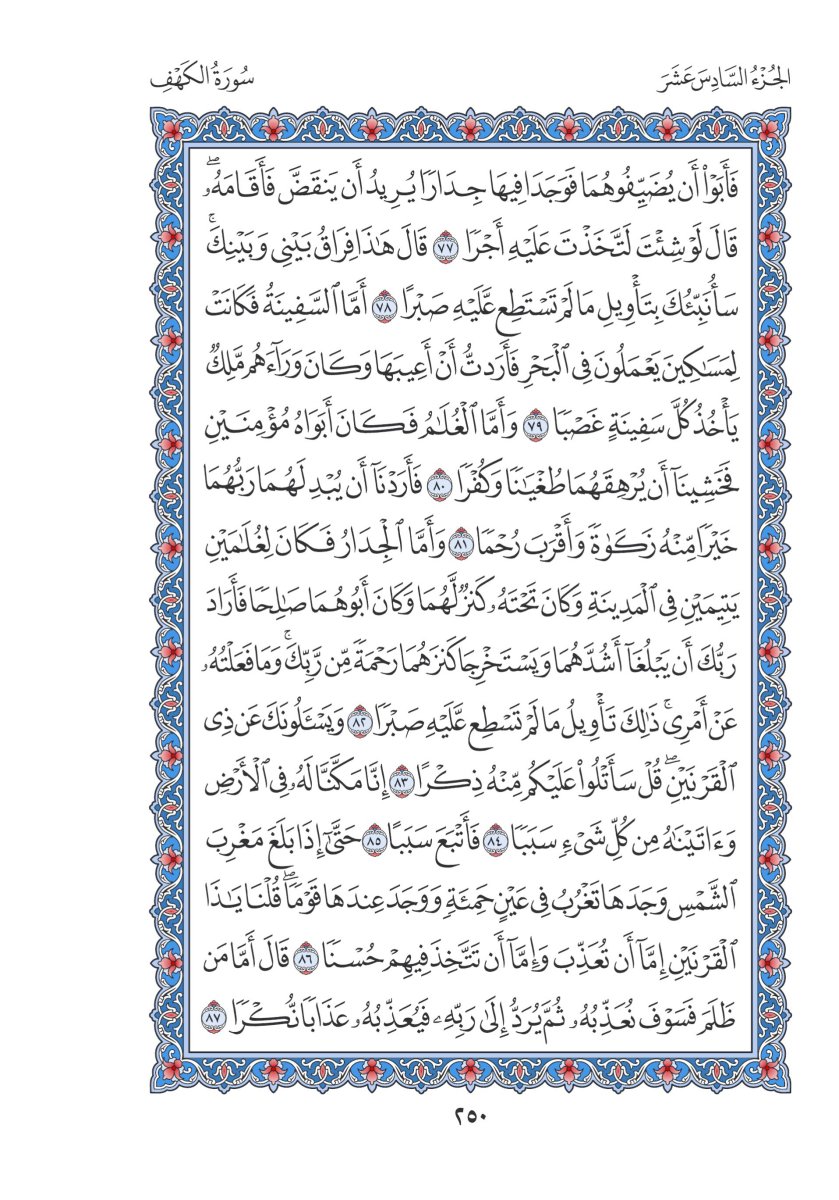 الجُزْءُ السَّادِسَ عَشَرَ
سُورَةُ الكَهْفِ
فَأَبَوْاْ أَن يُضَيِّفُوهُمَا فَوَجَدَا فِيهَا جِدَارًا يُرِيدُ أَن يَنقَضَّ فَأَقَامَهُۥۖ
قَالَ لَوْ شِئْتَ لَتَّخَذْتَ عَلَيْهِ أَجْرًا ٧٧ قَالَ هَٰذَا فِرَاقُ بَيْنِى وَبَيْنِكَۚ
سَأُنَبِّئُكَ بِتَأْوِيلِ مَا لَمْ تَسْتَطِع عَّلَيْهِ صَبْرًا ٧٨ أَمَّا ٱلسَّفِينَةُ فَكَانَتْ
لِمَسَٰكِينَ يَعْمَلُونَ فِى ٱلْبَحْرِ فَأَرَدتُّ أَنْ أَعِيبَهَا وَكَانَ وَرَآءَهُم مَّلِكٌ
يَأْخُذُ كُلَّ سَفِينَةٍ غَصْبًا ٧٩ وَأَمَّا ٱلْغُلَٰمُ فَكَانَ أَبَوَاهُ مُؤْمِنَيْنِ
فَخَشِينَآ أَن يُرْهِقَهُمَا طُغْيَٰنًا وَكُفْرًا ٨٠ فَأَرَدْنَآ أَن يُبْدِلَهُمَا رَبُّهُمَا
خَيْرًا مِّنْهُ زَكَوٰةً وَأَقْرَبَ رُحْمًا ٨١ وَأَمَّا ٱلْجِدَارُ فَكَانَ لِغُلَٰمَيْنِ
يَتِيمَيْنِ فِى ٱلْمَدِينَةِ وَكَانَ تَحْتَهُۥ كَنزٌ لَّهُمَا وَكَانَ أَبُوهُمَا صَٰلِحًا فَأَرَادَ
رَبُّكَ أَن يَبْلُغَآ أَشُدَّهُمَا وَيَسْتَخْرِجَا كَنزَهُمَا رَحْمَةً مِّن رَّبِّكَۚ وَمَا فَعَلْتُهُۥ
عَنْ أَمْرِىۚ ذَٰلِكَ تَأْوِيلُ مَا لَمْ تَسْطِع عَّلَيْهِ صَبْرًا ٨٢ وَيَسْـَٔلُونَكَ عَن ذِى
ٱلْقَرْنَيْنِۖ قُلْ سَأَتْلُواْ عَلَيْكُم مِّنْهُ ذِكْرًا ٨٣ إِنَّا مَكَّنَّا لَهُۥ فِى ٱلْأَرْضِ
وَءَاتَيْنَٰهُ مِن كُلِّ شَىْءٍ سَبَبًا ٨٤ فَأَتْبَعَ سَبَبًا ٨٥ حَتَّىٰٓ إِذَا بَلَغَ مَغْرِبَ
ٱلشَّمْسِ وَجَدَهَا تَغْرُبُ فِى عَيْنٍ حَمِئَةٍ وَوَجَدَ عِندَهَا قَوْمًاۖ قُلْنَا يَٰذَا
ٱلْقَرْنَيْنِ إِمَّآ أَن تُعَذِّبَ وَإِمَّآ أَن تَتَّخِذَ فِيهِمْ حُسْنًا ٨٦ قَالَ أَمَّا مَن
ظَلَمَ فَسَوْفَ نُعَذِّبُهُۥ ثُمَّ يُرَدُّ إِلَىٰ رَبِّهِۦ فَيُعَذِّبُهُۥ عَذَابًا نُّكْرًا ٨٧
٢٥٠